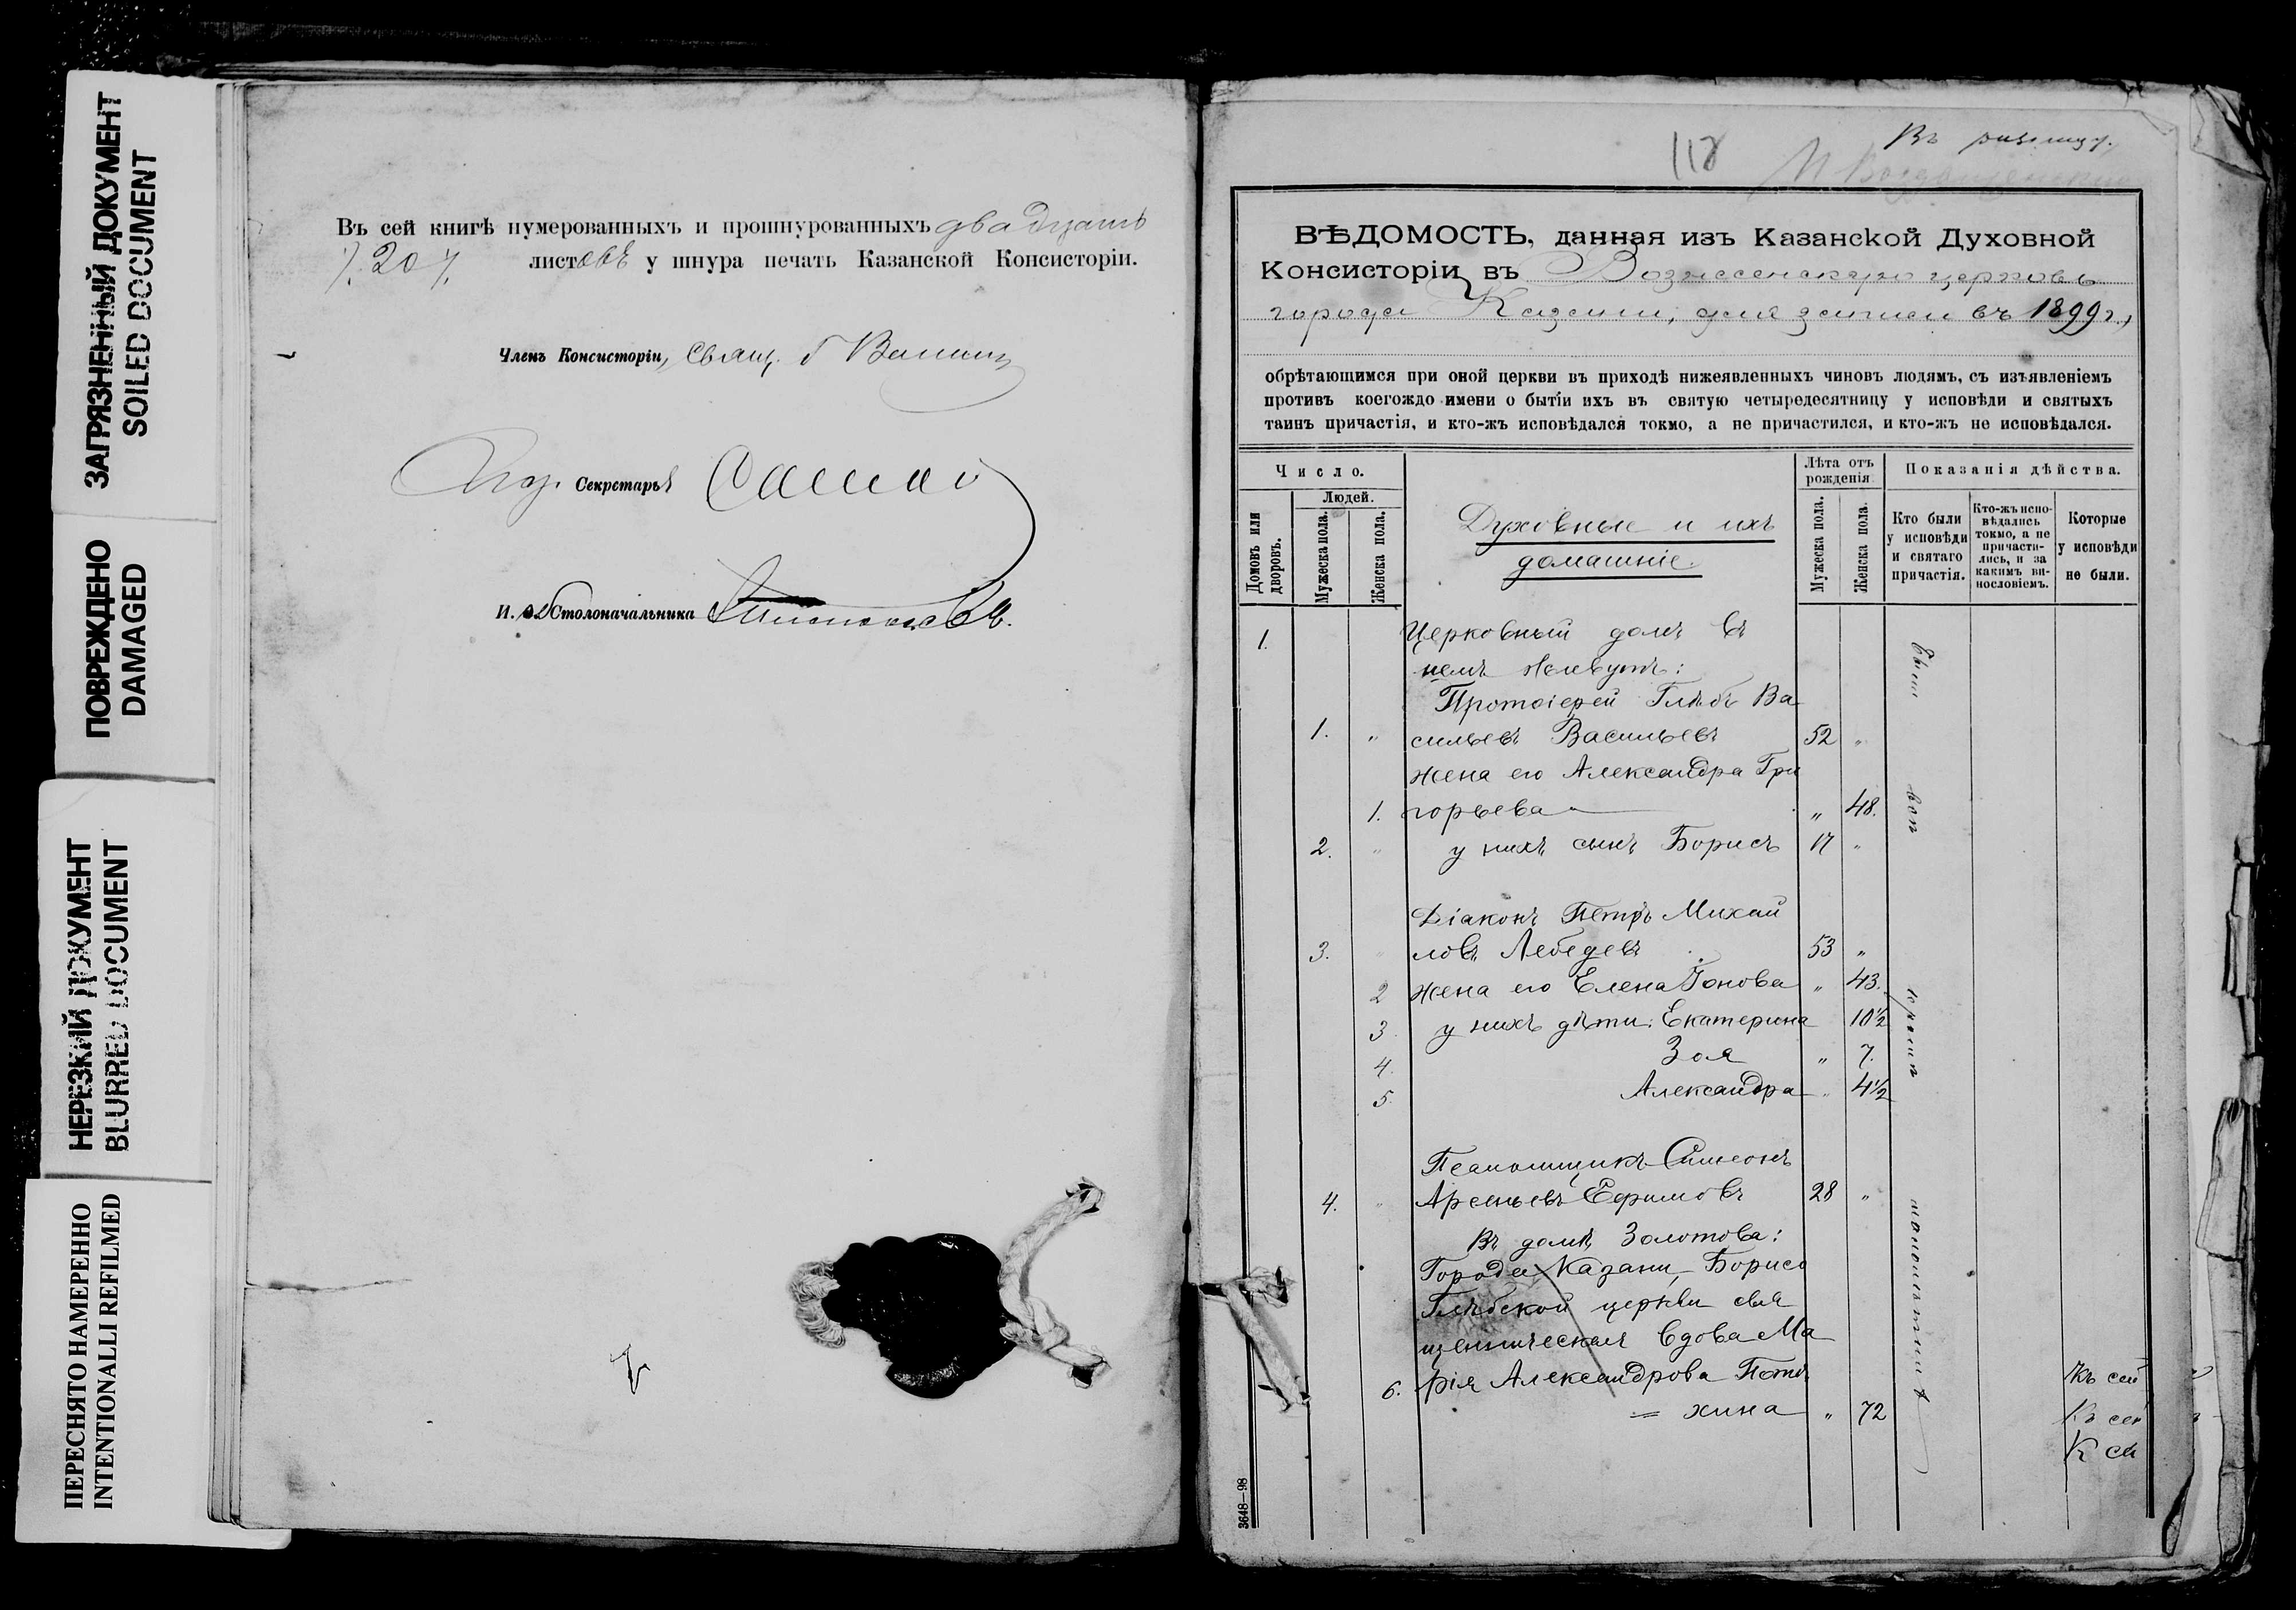 ЗАГРЯЗНЕННЫЙ ДОКУМЕНТ
SOILED DOCUMENT
ПОВРЕЖДЕНО
DAMAGED
НЕРЕЗКИЙ ДОКУМЕНТ
BLURRED DOCUMENT
ПЕРЕСНЯТО НАМЕРЕННО
INTENTIONALLI REFILMED
Въ сей книгѣ нумерованныхъ и прошнурованныхъ двадцать
/. 20 /. листовъ у шнура печать Казанской Консисторіи.
Членъ Консисторіи, Свящ.
Секретарь
И. д. Столоначальника
118
Въ
ВѢДОМОСТЬ, данная изъ Казанской Духовной
Консисторіи въ Вознесенскую церковь
города Казани, для записи въ 1899 г.,
обрѣтающимся при оной церкви въ приходѣ нижеявленныхъ чиновъ людямъ, съ изъявленіемъ
противъ коегождо имени о бытіи ихъ въ святую четыредесятницу у исповѣди и святыхъ
таинъ причастія, и кто-жъ исповѣдался токмо, а не причастился, и кто-жъ не исповѣдался.
Число.
Людей.
Домовъ или дворовъ.
Мужеска пола.
Женска пола.
Духовные и ихъ
домашніе.
Лѣта отъ
рожденія.
Мужеска пола.
Женска пола.
Показанія дѣйства.
Кто были
у исповѣди
и святаго
причастія.
Кто-жъ испо-
вѣдались
токмо, а не
причасти-
лись, и за
какимъ ви-
нословіемъ.
Которые
у исповѣди
не были.
1. Церковный домъ въ
немъ живутъ:
Протоіерей Глѣбъ Ва
1. " сильевъ Васильевъ 52 "
жена его Александра Гри
1. горьева " 48.
2. " у нихъ сынъ Борисъ 17 "
Діаконъ Петръ Михай
3. " ловъ Лебедевъ 53 "
2 жена его Елена Іонова " 43.
3 у нихъ дѣти: Екатерина 10½
4. Зоя " 7.
5. Александра " 4½
Псаломщикъ Симеонъ
4. " Арсеньевъ Ефимовъ 28 "
Въ домѣ Золотова:
Города Казани, Борисо
Глѣбской церкви свя
щенническая вдова Ма
6. рія Александрова Потѣ
= хина " 72
Къ сей
Къ сей
К се
3648—98